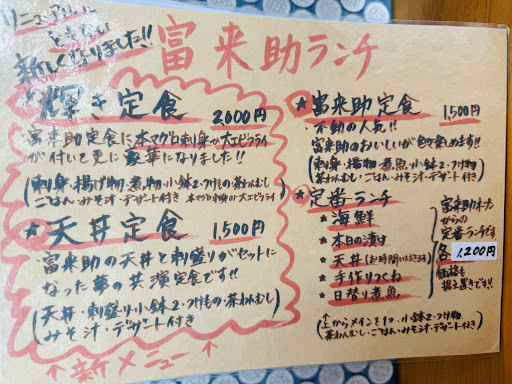 リニューアルに
ともない
新しくなりました!!
富来助ランチ
★輝き定食 2000円
・富来助定食に本マグロ刺身か大エビフライ
が付いて更に豪華になりました!!
(刺身・揚げ物・煮物・小鉢2・つけもの・茶わんむし
ごはん・みそ汁・デザート付き 本マグロ刺身か大エビフライ)
★天丼定食 1,500円
・富来助の天丼と刺盛りがセットに
なった夢の共演定食です!!
(天丼・刺盛り・小鉢2・つけもの・茶わんむし
みそ汁・デザート付き)
↑新メニュー↑
★富来助定食 1,500円
・不動の人気!!
富来助のおいしいが色々楽しめます!!
(刺身・揚物・煮魚・小鉢2・つけ物
茶わんむし・ごはん・みそ汁・デザート付き)
★定番ランチ
★海鮮
★本日の漬け
★天丼(お時間いただきます)
★手作りつくね
★日替り煮魚
富来助オープン
からの
定番ランチです
各1,200円
価格も
据え置きです!!
(上からメインを1つ・小鉢2・つけ物
茶わんむし・ごはん・みそ汁・デザート付き)